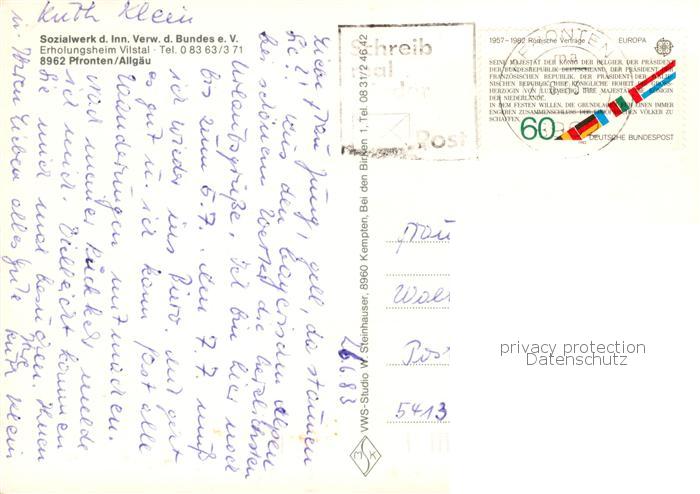 Ruth Klein
Sozialwerk d. Inn. Verw. d. Bundes e. V.
Erholungsheim Vilstal · Tel. 0 83 63/3 71
8962 Pfronten/Allgäu
Liebe Frau Jung, gell, da staunen
Sie! Aus den bayrischen Alpen
bei schönem Wetter die herzlichsten
Urlaubsgrüße. Ich bin hier noch
bis zum 5.7. Am 7.7. muß
ich wieder ins Büro. Mir geht
es gut u. ich kann fast alle
Wanderungen mitmachen.
Nach meiner Rückkehr melde
ich mich. Vielleicht können
Sie mich mal besuchen. Ihnen
u. Ihren Lieben alles Gute Ihre
Ruth Klein
26.6.83
VWS-Studio W. Steinhauser, 8960 Kempten, Bei den Birken 1, Tel. 08 31/2 46 42
MSK
Schreib
mal
wieder
Post
1957–1982 Römische Verträge EUROPA
SEINE MAJESTÄT DER KÖNIG DER BELGIER, DER PRÄSIDENT
DER BUNDESREPUBLIK DEUTSCHLAND, DER PRÄSIDENT DER
FRANZÖSISCHEN REPUBLIK, DER PRÄSIDENT DER ITALIENISCHEN
NISCHEN REPUBLIK, IHRE KÖNIGLICHE HOHEIT DIE GROSS-
HERZOGIN VON LUXEMBURG, IHRE MAJESTÄT DIE KÖNIGIN
DER NIEDERLANDE,
IN DEM FESTEN WILLEN, DIE GRUNDLAGEN FÜR EINEN IMMER
ENGEREN ZUSAMMENSCHLUSS DER EUROPÄISCHEN VÖLKER ZU
SCHAFFEN,
60
DEUTSCHE BUNDESPOST
1982
PFRONTEN
Frau
Post
5413
privacy protection
Datenschutz